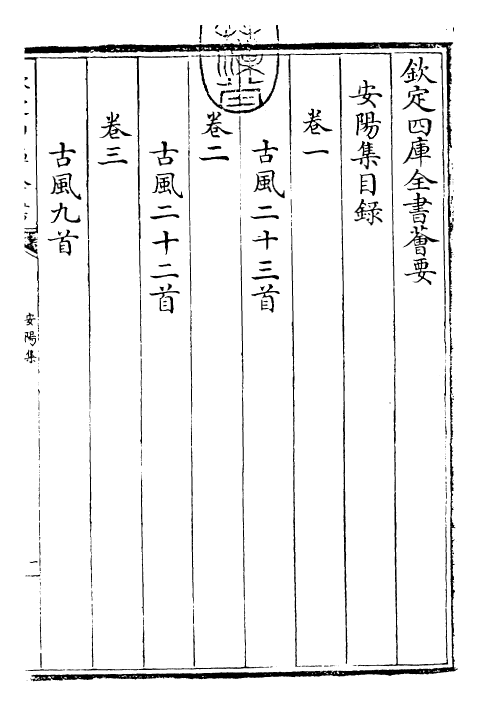 欽定四庫全書薈要
安陽集目録
卷一
古風二十三首
卷二
古風二十二首
卷三
古風九首
安陽集